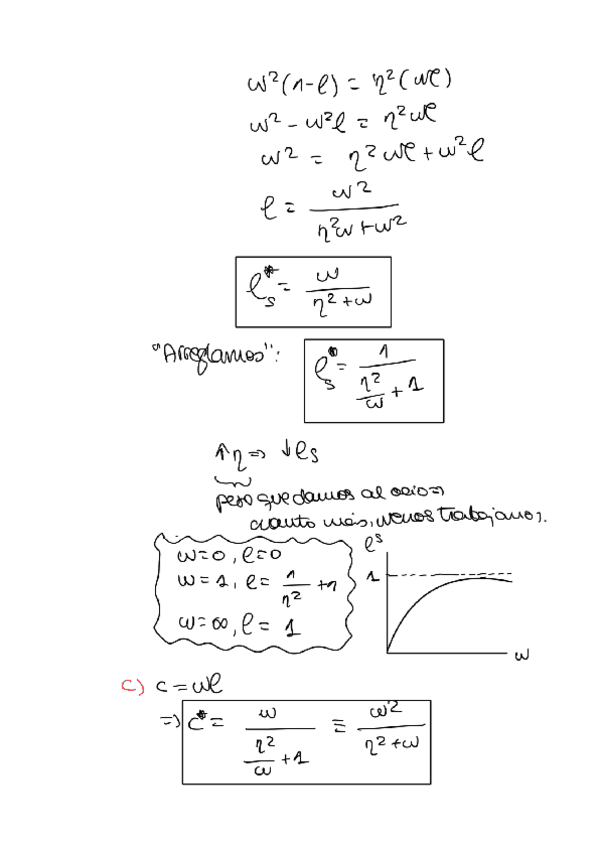 w²(1-l) = η²(wl)
w² - w²l = η²wl
w² = η²wl + w²l
l = w² / (η²w + w²)
l*ₛ = w / (η² + w)
"Arreglamos": l*ₛ = 1 / (η²/w + 1)
↑η ⇒ ↓lₛ
peso que damos al ocio ⇒
cuanto más, menos trabajamos.
w=0, l=0
w=1, l = 1 / η² + 1
w=∞, l = 1
lˢ
1
w
c) c = wl
⇒) c* = w / (η²/w + 1) ≡ w² / (η² + w)